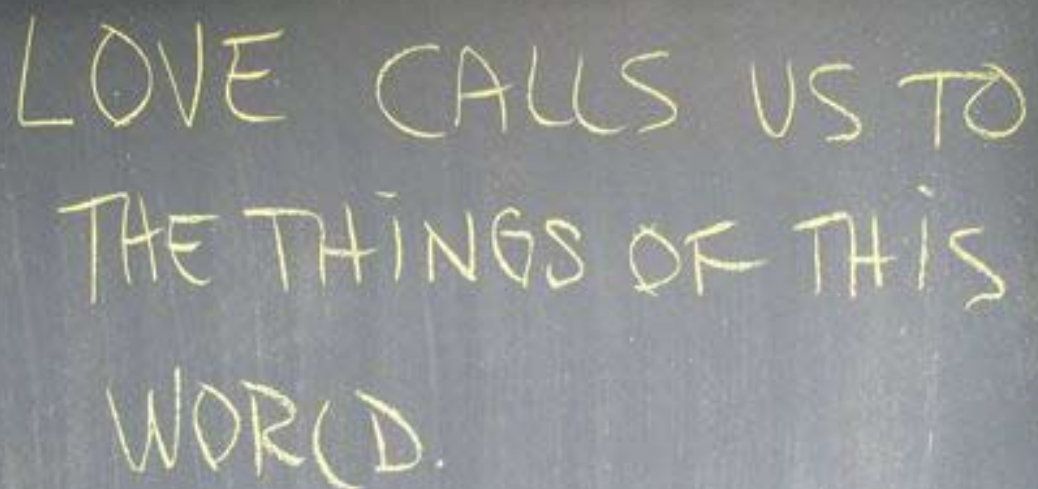 LOVE CALLS US TO
THE THiNGS OF THiS
WORLD.